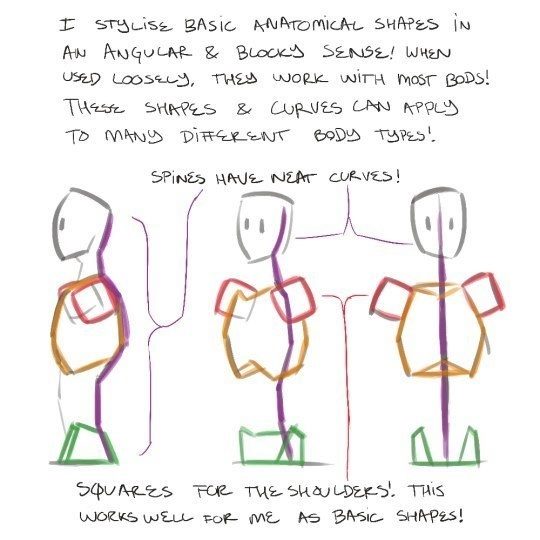 I STYLISE BASIC ANATOMICAL SHAPES IN
AN ANGULAR & BLOCKY SENSE! WHEN
USED LOOSELY, THEY WORK WITH MOST BODS!
THESE SHAPES & CURVES CAN APPLY
TO MANY DIFFERENT BODY TYPES!
SPINES HAVE NEAT CURVES!
SQUARES FOR THE SHOULDERS! THIS
WORKS WELL FOR ME AS BASIC SHAPES!